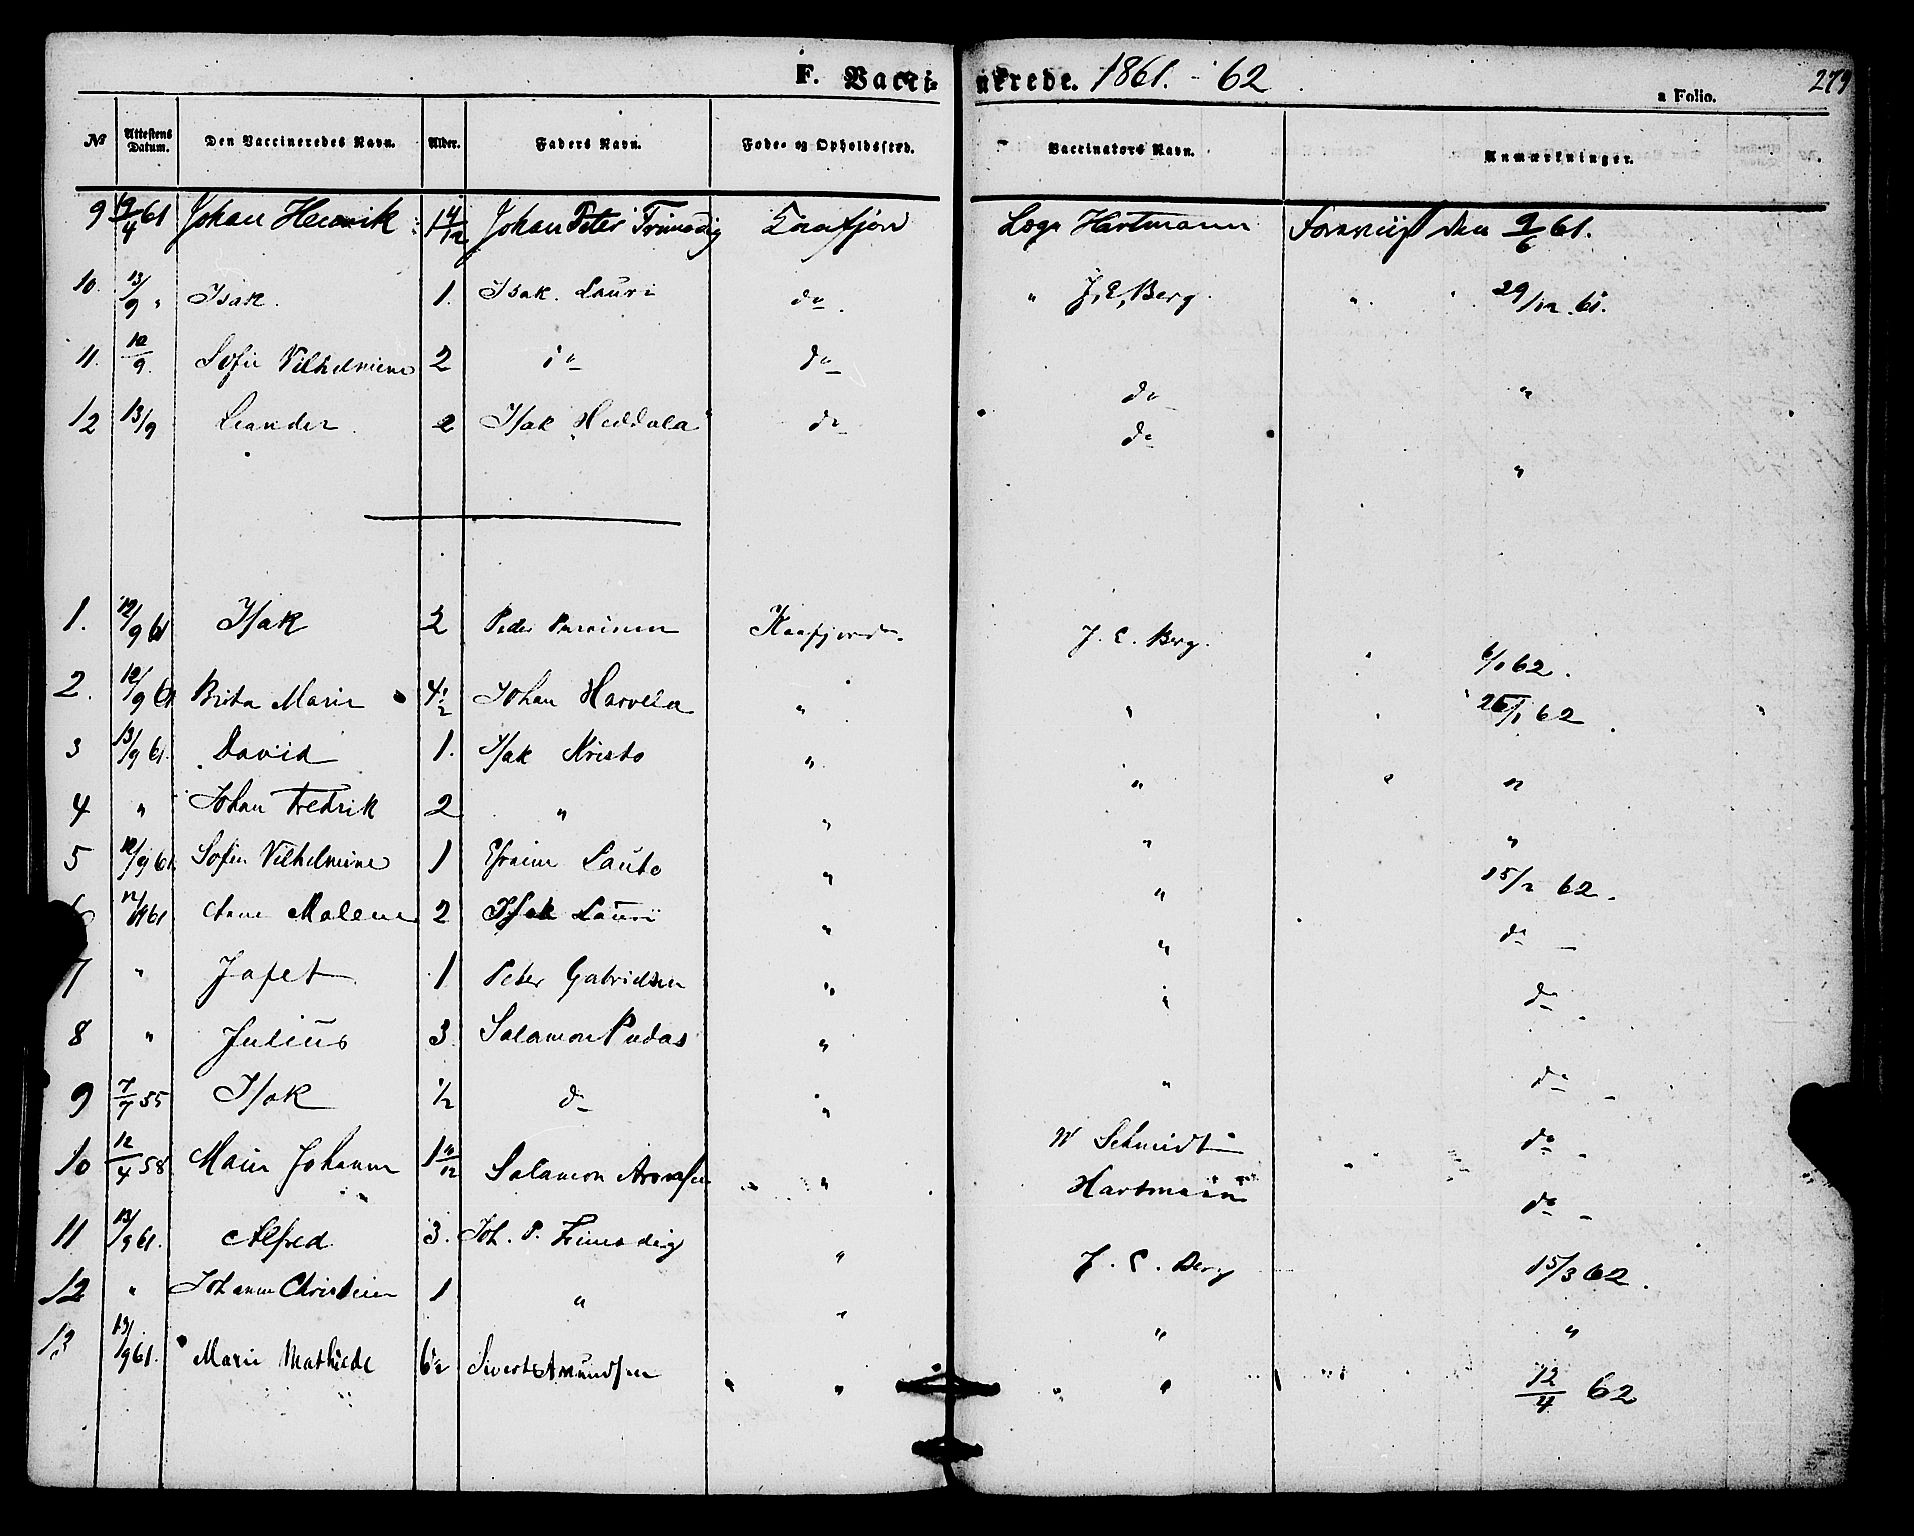 F. Vacci- nerede. 1861. - 62
a Folio. 279
№ Attestens Datum. Den Vaccineredes Navn. Alder. Faders Navn. Føde- og Opholdssted. Vaccinators Navn. Anmærkninger.
9 12/4 61 Johan Henrik 1 4/12 Johan Peter Kaafjord Hartmann Foreviist den 9/6 61.
10. 13/9 " Isak. 1. Isak Lauri do. " J. E. Berg. " " 29/12 61.
11. 12/9. Sofie Vilhelmine 2 do do do "
12 13/9 Leander 2 Isak Heddala do do "
1. 12/9 61 Isak 2 Peder Kaafjord. J. E. Berg. 6/1 62.
2. 12/9 61 Brita Marie 4 1/2 Johan Harvela " " 26/1 62
3 13/9 61. David 1. Isak Kristo " " " "
4 " Johan Fredrik 2 " " " "
5 12/9 61. Sofie Vilhelmine 1 Efraim Lauto " " 15/2 62.
6 61 Anne Malene 2 Isak Lauri " " do -
7 " Jafet 1 Peter Gabrielsen " " do
8 " Julius 3 Salamon Pudas " " do -
9 7/7 55 Isak 1/2 do " W Schmidt do -
10 12/4 58 Maria Johanne 1 Salamon " Hartmann do -
11 13/9 61. Alfred 3. Joh. P. " J. E. Berg 15/3 62.
12 " Johanne Christine 1 " " " "
13 13/9 61. Marie Mathilde 6 1/2 Sivert Amundsen " " 12/4 62